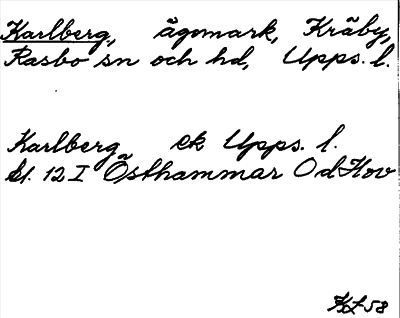 Karlberg, ägomark, Kräby,
Rasbo sn och hd, Upps. l.
Karlberg ek Upps. l.
Bl. 12 I Östhammar Od Hov
KL 58